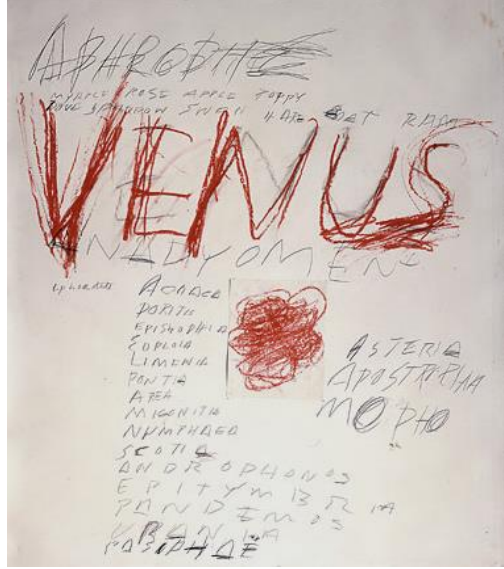 APHRODITE
MYRTLE ROSE APPLE POPPY
DOVE SPARROW SWAN HARE GOAT RAM
VENUS
ANADYOMENE
DORITIS
EPISTROPHIA
EUPLOIA
LIMENIA
PONTIA
APEA
MIGONITIS
NUMPHAEA
SCOTIA
ANDROPHONOS
EPITYMBRIA
PANDEMOS
URANIA
PASIPHAE
ASTERIA
APOSTROPHIA
MORPHO